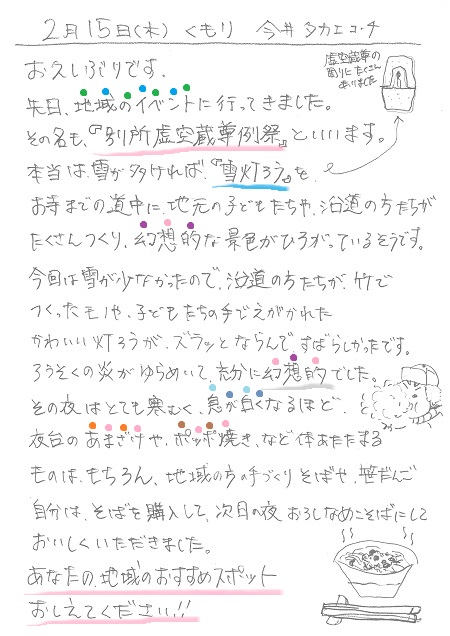 2月15日(木) くもり 今井タカエコーチ
虚空蔵尊の
周りにたくさん
ありました
お久しぶりです。
先日、地域のイベントに行ってきました。
その名も、『別所虚空蔵尊例祭』といいます。
本当は、雪が多ければ、『雪灯ろう』を、
お寺までの道中に、地元の子どもたちや、沿道の方たちが
たくさんつくり、幻想的な景色がひろがっているそうです。
今回は雪が少なかったので、沿道の方たちが、竹で
つくったモノや、子どもたちの手でえがかれた
かわいい灯ろうが、ズラッとならんで、すばらしかったです。
ろうそくの炎がゆらめいて、充分に幻想的でした。
その夜はとても寒むく、息が白くなるほど、
夜台のあまざけや、ポッポ焼き、など体あたたまる
ものは、もちろん、地域の方の手づくりそばや、笹だんご
自分は、そばを購入して、次日の夜、おろしなめこそばにして
おいしくいただきました。
あなたの、地域のおすすめスポット
おしえてください!!